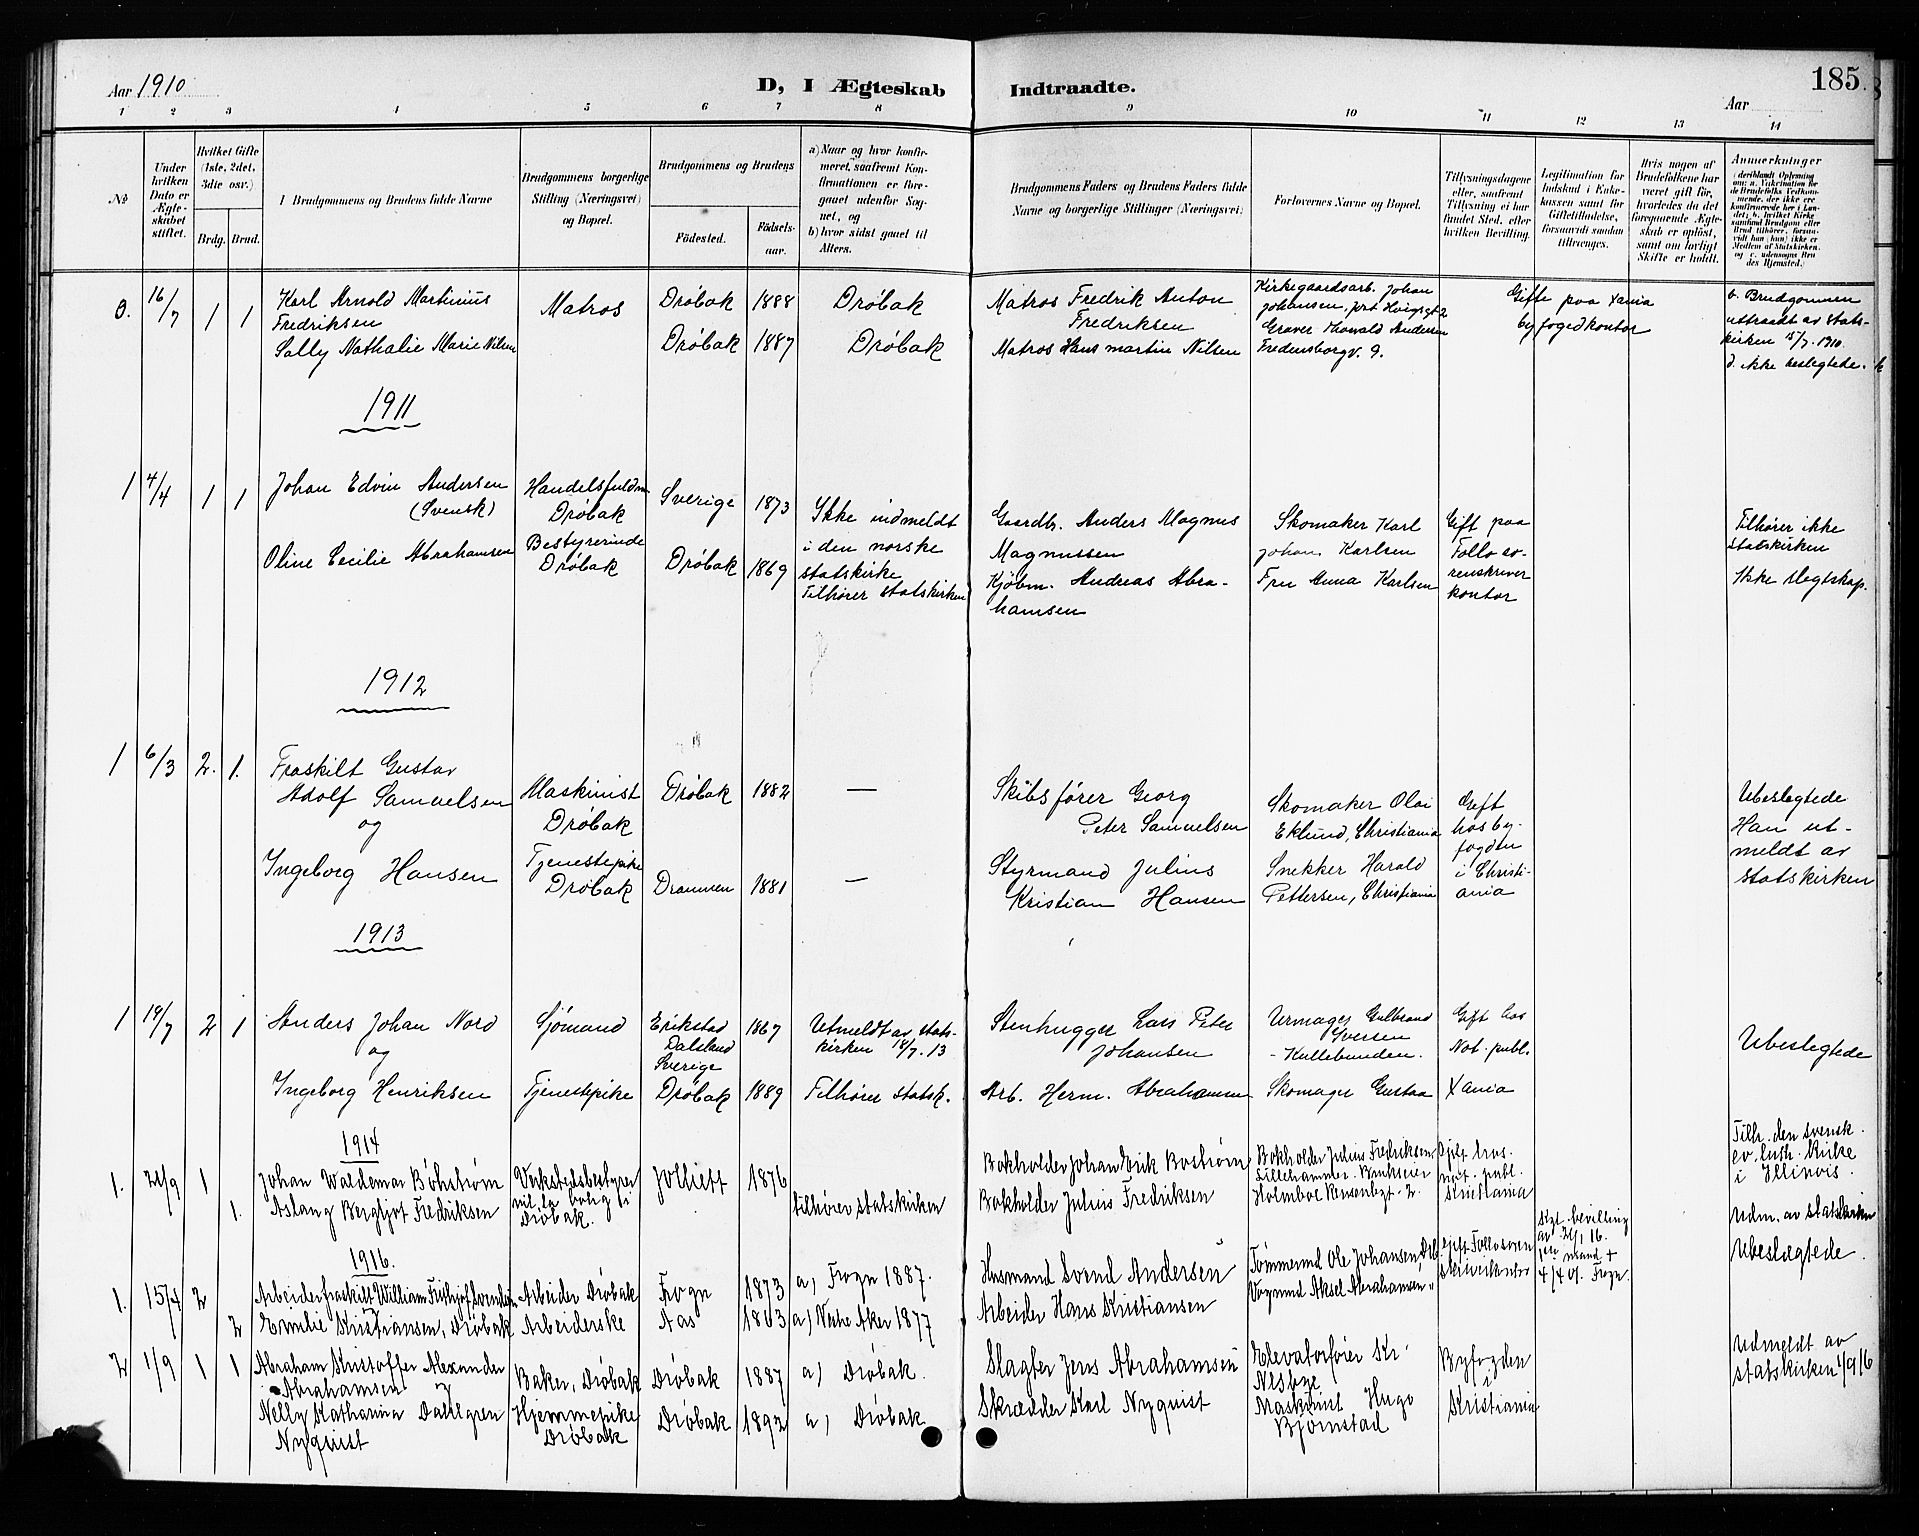 Aar 1910
D, I Ægteskab Indtraadte.
Aar
185.
1 2 3 4 5 6 7 8 9 10 11 12 13 14
No
Under hvilken Dato er Ægteskabet stiftet.
Hvilket Gifte (1ste, 2det, 3die osv.)
Brdg. Brud.
I Brudgommens og Brudens fulde Navne
Brudgommens borgerlige Stilling (Næringsvei) og Bopæl.
Brudgommens og Brudens
Födested.
Födselsaar.
a) Naar og hvor konfirmeret, saafremt Konfirmationen er foregaaet udenfor Sognet, og
b) hvor sidst gaaet til Alters.
Brudgommens Faders og Brudens Faders fulde Navne og borgerlige Stillinger (Næringsvei)
Forlovernes Navne og Bopæl.
Tillysningsdagene eller, saafremt Tillysning ei har fundet Sted, efter hvilken Bevilling.
Legitimation for Indskud i Enkekassen samt for Giftetilladelse, forsaavidt saadan tiltrænges.
Hvis nogen af Brudefolkene har været gift før, hvorledes da det foregaaende Ægteskab er opløst, samt om lovligt Skifte er holdt.
Anmerkninger
(deriblandt Oplysning om: a. Vakcination for de Brudefolks Vedkommende, der ikke ere konfirmerede her i Landet; b. hvilket Kirkesamfund Brudgom eller Brud tilhörer, forsaavidt han (hun) ikke er Medlem af Statskirken, og c. udensogns Brudes Hjemsted.)
3. 16/7 1 1 Karl Arnold Martinius Fredriksen
Matros Drøbak 1888 Drøbak
Matros Fredrik Anton Fredriksen
Kirkegaardsarb. Johan Johansen,
Gifte paa Xania byfogedkontor
b. Brudgommen uttraadt av statskirken 15/7.1910.
d. ikke beslegtede.
Sally Nathalie Marie Nilsen
Drøbak 1887 Drøbak
Matros Hans Martin Nilsen
Graver Thorvald Andersen Fredensborgv. 9.
1911
1 4/4 1 1 Johan Edvin Andersen (Svensk)
Handelsfuldm. Drøbak
Sverige 1873
Ikke indmeldt i den norske statskirke
Gaardbr. Anders Magnus Magnussen
Skomaker Karl Johan Karlsen
Gift paa Follo sorenskriver kontor
Tilhører ikke statskirken
Oline Cecilie Abrahamsen
Bestyrerinde Drøbak
Drøbak 1869
Tilhører statskirken
Kjøbm. Andreas Abrahamsen
Fru Anna Karlsen
Ikke slegtskap.
1912
1 6/3 2. 1. Fraskilt Gustav Adolf Samuelsen
og
Maskinist Drøbak
Drøbak 1882 —
Skibsfører Georg Peter Samuelsen
Skomaker Olai Eklund, Christiania
Gift hos byfogden i Christiania
Ubeslegtede
Han utmeldt av statskirken
Ingeborg Hansen
Tjenestepike Drøbak
Drammen 1881 —
Styrmand Julius Kristian Hansen
Snekker Harald Pettersen, Christiania
1913
1 19/7 2 1 Anders Johan Nord
og
Sjømand
Erikstad Dalsland Sverige
1867
Utmeldt av statskirken 18/7.13
Stenhugger Lars Peter Johansen
Urmager Gulbrand Iversen
- Kullebunden.
Gift hos Not. publ. Xania
Ubeslegtede
Ingeborg Henriksen
Tjenestepike
Drøbak 1889
Tilhører statsk.
Arb. Herm. Abrahamsen
Skomager Gustav
1914
1. 21/9 1 Johan Waldemar Böhström
Verkstedsbestyrer Drøbak.
Jolliett 1876
Bokholder Johan Erik Boström
Bokholder Julius Fredriksen Lillehammer.
not. publ. Kristiania
Tilh. den svensk. ev. luth. kirke i Illinois.
1. Aslaug Bergljot Fredriksen
tilhører statskirken
Bokholder Julius Fredriksen
Udm. av statskirken
1916.
1. 15/4 2 Arbeider fraskilt William Frithjof Svendsen
Arbeider Drøbak
Frogn 1873
a) Frogn 1887.
Husmand Svend Andersen
Tømmermd Ole Johansen, Drb.
gift Follo soren skriverkontor
kgl. bevilling
Frogn.
Ubeslægtede.
2 Emilie Kristiansen, Drøbak
Arbeiderske
Aas 1863
a) Vestre Aker 1877
Arbeider Hans Kristiansen
Vognmd Aksel Abrahamsen "
2 1/9 1 1 Abraham Kristoffer Alexander Abrahamsen
Baker, Drøbak
Drøbak 1887
a) Drøbak.
Slagter Jens Abrahamsen
Elevatorfører Kr. Nesbye
Byfogden i Kristiania
Udmeldt av statskirken 1/9 16
Nelly Katharina Dahlgren Nyquist
Hjemmepike Drøbak
Drøbak 1892
a) Drøbak
Skrædder Karl Nyquist
Maskinist Hugo Bjørnstad